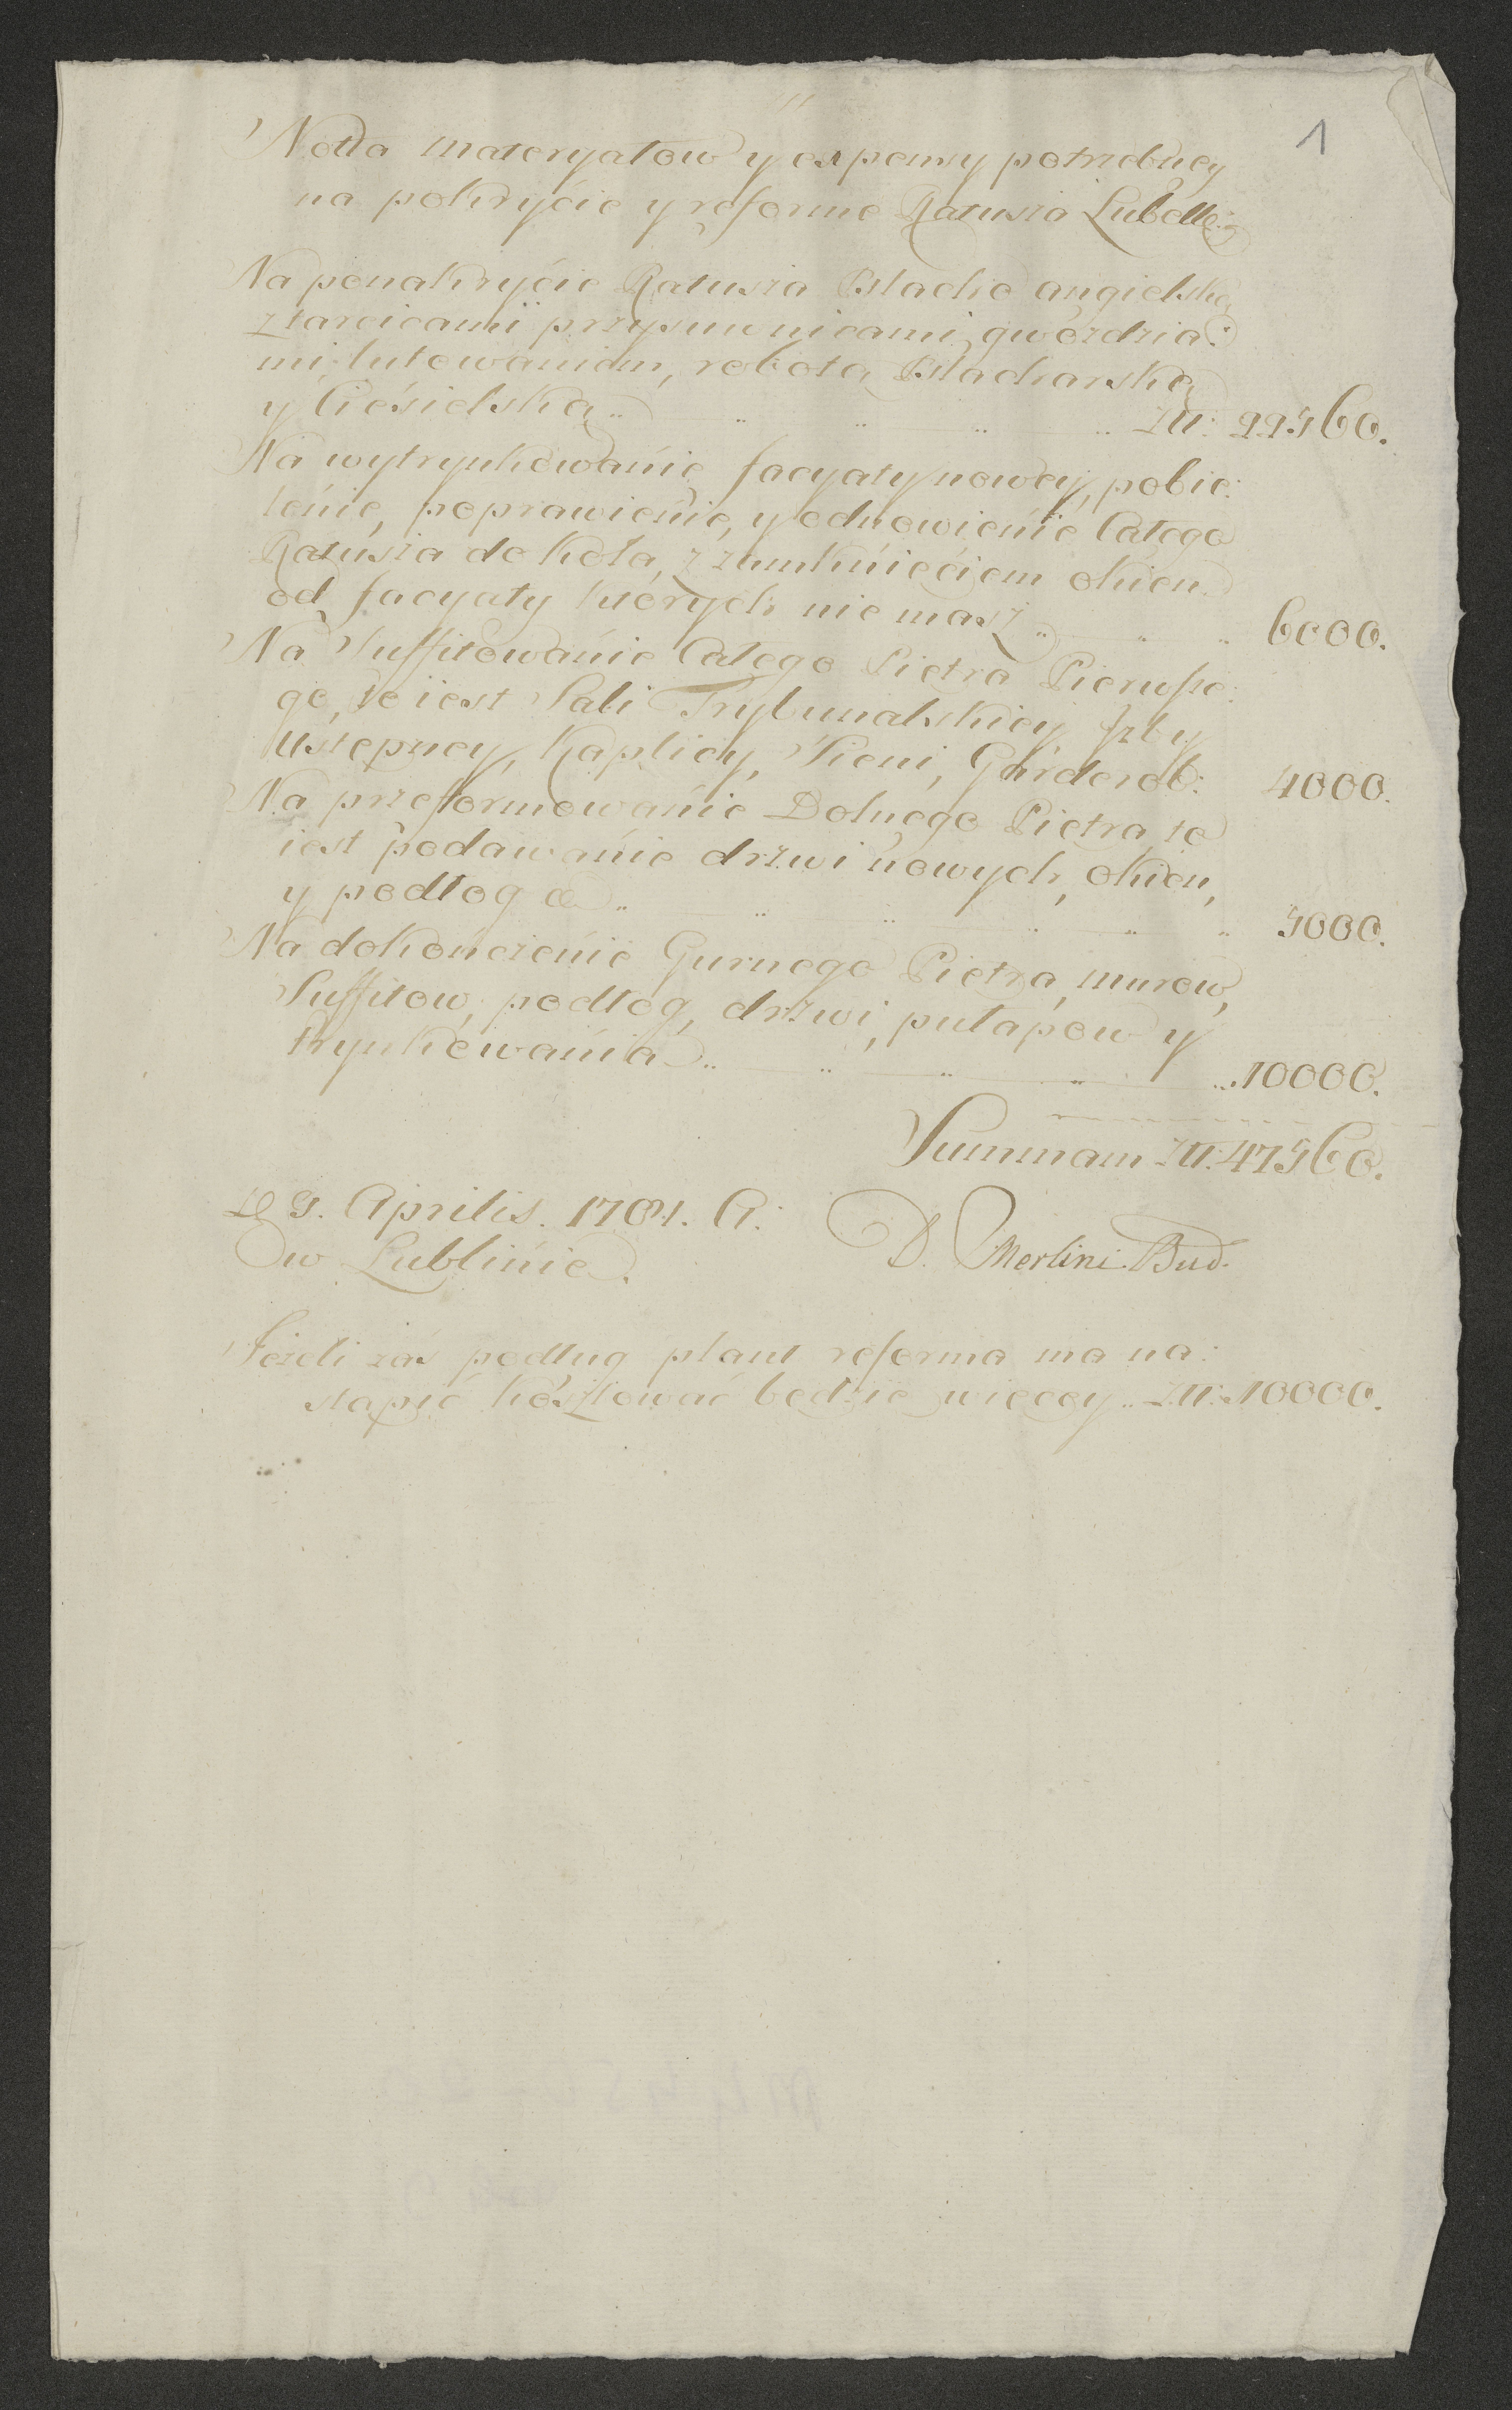 1
Notta materyałow y expensy potrzebney
na pokryćie y reforme Ratusza Lubelle:g
Na ponakryćie Ratusza Blachą angielską
z tarcicami przysuwnicami, gwoździa:
mi, lutowaniem, robotą Blacharską
y Ciesielską .. .. .. .. .. Złł: 22560.
Na wytrynkowanie facyaty nowey, pobie:
lenie, poprawienie, y odnowienie Całego
Ratusza do koła, z zamknięćiem okien
od facyaty ktorych nie masz .. .. .. 6000.
Na Suffitowanie Całego Piętra Pierwsze:
go, to iest Sali Trybunalskiey Izby
Ustępney, Kaplicy, Sieni, Garderob: 4000.
Na przeformowanie Dolnego Piętra, to
iest podawanie drzwi nowych, okien,
y podłog &. .. .. .. .. .. .. 5000.
Na dokonczenie Gurnego Piętra, murow,
Suffitow, podłog, drzwi, pułapow y
trynkowania .. .. .. .. .. 10000.
Summam Złł: 47560.
D 9. Aprilis. 1781. A:
w Lublinie. D. Merlini Bud.
Jeżeli zaś podług plant reforma ma na:
stąpić kosztować będzie więcey .. Złł: 10000.